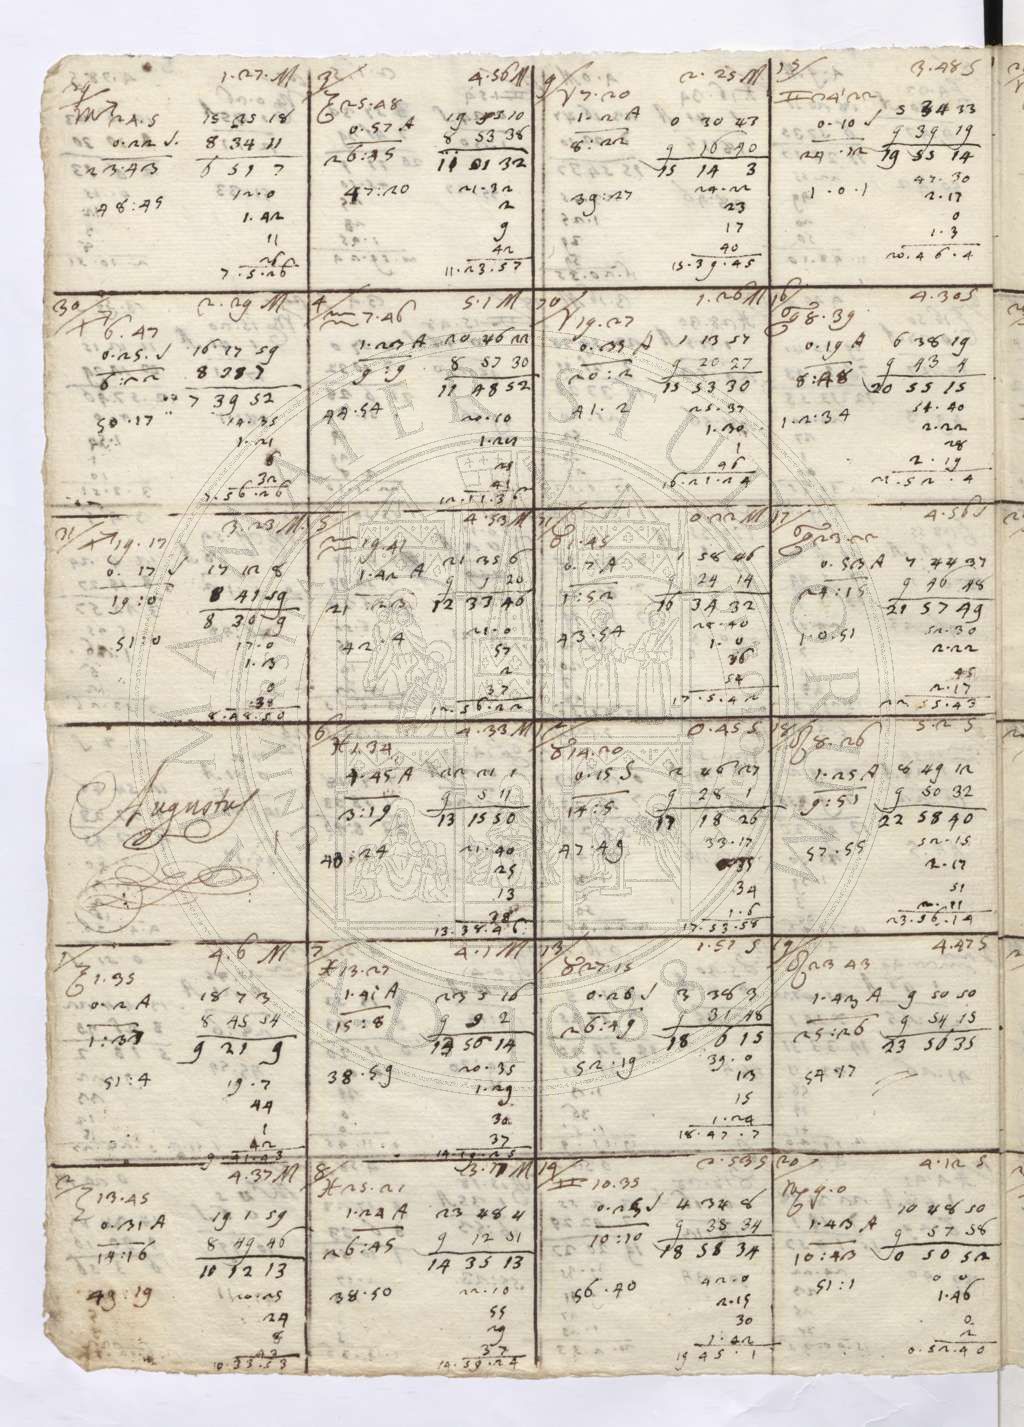 29/ 1.27. M
♏ 24.5 15 35 18
0.22 J. 8 34 11
23:43 6 51 7
48:45 12.0
1.42
11
26
7.5.26
30/ 2.29 M
♐ 6.47
0.25. J 16 17 59
6:22
7 39 52
50.17 14.35
1.21
6
32
7.56.26
31/ 3.23 M.
♐ 19.17
0.17 J 17 12 8
19:0 8 41 59
8 30 9
51:0 17.0
1.13
0
38
8.48.50
Augustus
1/ 4.6 M
♑ 1.35
0.2 A 18 7 3
1:33 8 45 54
9 21 9
51:4 19.7
44
1
42
9.41.43
2/ 4.37 M
♑ 13.45
0.31 A 19 1 59
14:16 8 49 46
10 12 13
49:19 20.25
24
8
43
10.33.53
3/ 4.56 M
♑ 25.48
0.57 A
26:45 8 53 38
47:20 21.32
2
9
42
11.23.57
4/ 5.1 M
♒ 7.46
1.23 A 20 46 22
9:9 8 57 30
11 48 52
44.54 20.10
5/ 4.53 M
♒ 19.41
1.42 A 21 35 6
21 23 12 33 40
42:4 21.0
57
2
37
12.56.22
6/ 4.33 M
♓ 1.34
1.45 A 22 21 1
3:19 9 5 11
13 15 50
40:24 21.40
25
13
38
13.38.46
7/ 4.1 M
♓ 13.27
1.41 A 23 5 16
15:8 9 9 2
14 50 14
38.59 20.35
1.29
30
37
8/ 3.11 M
♓ 25.21
1.24 A 23 48 4
26:45 9 12 51
14 35 13
38.50 22.10
55
29
37
14.59.24
9/ 2.25 M
♈ 7.20
1.2 A 0 30 43
8:22 9 16 40
15 14 3
39:27 24.22
23
17
40
15.39.45
10/ 1.26 M
♈ 19.27
0.35 A 1 13 57
20:2 9 20 27
15 53 30
41.2 25.37
1.30
1
46
16.21.24
11/ 0.22 M
♉ 1.45
0.7 A 1 58 46
1:52 9 24 14
16 34 32
43.54 28.40
1.0
36
54
17.5.42
12/ 0.45 S
♉ 14.20
0.15 S 2 46 27
14:5 9 28 1
17 18 26
47.49 33.17
35
34
1.6
17.53.58
13/ 1.57 S
♉ 27.15
0.26 J 3 38 3
26:49 9 31 48
18 6 15
52:19 39.0
13
15
1.24
18.47.7
14/ 2.53 S
♊ 10.35
0.25 J 4 34 8
10:10 9 35 34
18 58 34
56.40 42.0
2.15
30
1.42
19 45.1
15/ 3.48 S
♊ 24.22
0.10 J 5 34 33
24.12 9 39 19
19 55 14
1.0.1 47.30
2.17
0
1.3
20.46.4
16/ 4.30 S
♋ 8.39
0.19 A 6 38 19
8:48 9 43 4
20 55 15
1.2.34 54.40
2.22
28
2.19
21.52.4
17/ 4.56 S
♋ 23.22
0.53 A 7 44 37
24:15 9 46 48
21 57 49
1.0.51 52.30
2.22
45
2.17
22 55.43
18/ 5.2 S
♌ 8.26
1.25 A 8 49 12
9:51 9 50 32
22 58 40
57.55 52.15
2.17
51
2.11
23.56.14
19/ 4.47 S
♌ 23 43
1.43 A 9 50 50
25:26 9 54 15
23 50 35
54 17
20/ 4.12 S
♍ 9.0
1.43 A 10 48 50
10:43 9 57 58
0 50 52
51:1 0 0
1.46
0
2
0.52.40